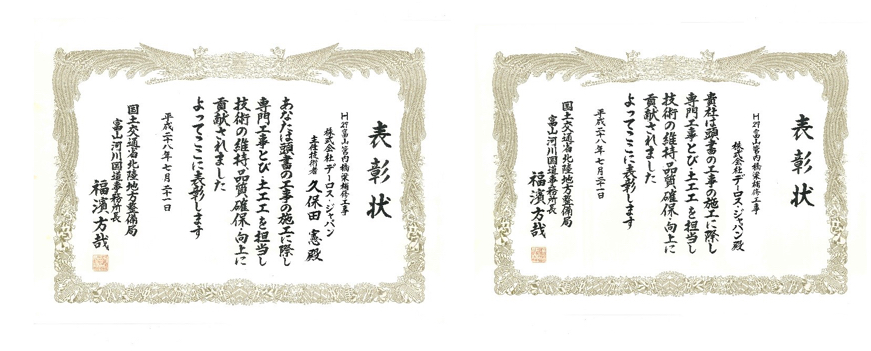 表彰状
H27富山管内橋梁補修工事
株式会社デーロス・ジャパン
主任技術者 久保田 憲 殿
あなたは頭書の工事の施工に際し
専門工事とび・土工工を担当し
技術の維持、品質、確保・向上に
貢献されました
よってここに表彰します
平成二十八年七月二十一日
国土交通省北陸地方整備局
富山河川国道事務所長
福濱方哉
表彰状
H27富山管内橋梁補修工事
株式会社デーロス・ジャパン殿
貴社は頭書の工事の施工に際し
専門工事とび・土工工を担当し
技術の維持、品質、確保・向上に
貢献されました
よってここに表彰します
平成二十八年七月二十一日
国土交通省北陸地方整備局
富山河川国道事務所長
福濱方哉